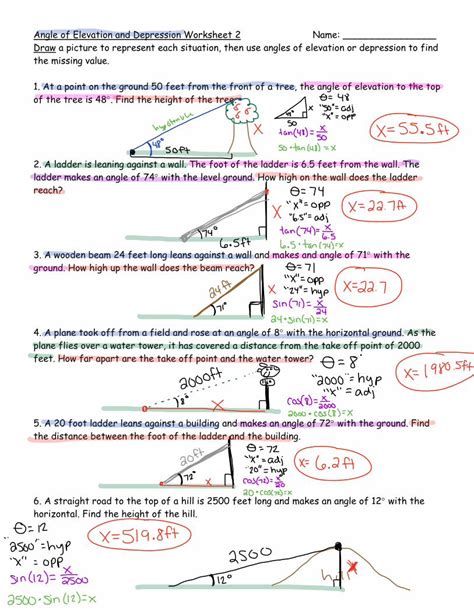 Angle of Elevation and Depression Worksheet 2 Name: _________________
Draw a picture to represent each situation, then use angles of elevation or depression to find
the missing value.
1. At a point on the ground 50 feet from the front of a tree, the angle of elevation to the top
of the tree is 48°. Find the height of the tree.
θ = 48
"50" = adj
"x" = opp
x
50
hypotenuse
48°
x
50ft
tan(48) = x/50
50·tan(48) = x
x=55.5ft
2. A ladder is leaning against a wall. The foot of the ladder is 6.5 feet from the wall. The
ladder makes an angle of 74° with the level ground. How high on the wall does the ladder
reach?
θ = 74
"x" = opp
"6.5" = adj
x
74°
6.5ft
tan(74) = x/6.5
6.5·tan(74) = x
x=22.7ft
3. A wooden beam 24 feet long leans against a wall and makes and angle of 71° with the
ground. How high up the wall does the beam reach?
θ = 71
"x" = opp
"24" = hyp
24ft
x
71°
sin(71) = x/24
24·sin(71) = x
x=22.7
4. A plane took off from a field and rose at an angle of 8° with the horizontal ground. As the
plane flies over a water tower, it has covered a distance from the take off point of 2000
feet. How far apart are the take off point and the water tower?
θ = 8°
"2000" = hyp
"x" = adj
2000ft
8°
x
cos(8) = x/2000
2000·cos(8) = x
x=1980.5ft
5. A 20 foot ladder leans against a building and makes an angle of 72° with the ground. Find
the distance between the foot of the ladder and the building.
θ = 72
"x" = adj
"20" = hyp
20ft
72°
x
cos(72) = x/20
20·cos(72) = x
x=6.2ft
6. A straight road to the top of a hill is 2500 feet long and makes an angle of 12° with the
horizontal. Find the height of the hill.
θ = 12
"2500" = hyp
"x" = opp
sin(12) = x/2500
2500·sin(12) = x
x=519.8ft
2500
12°
x